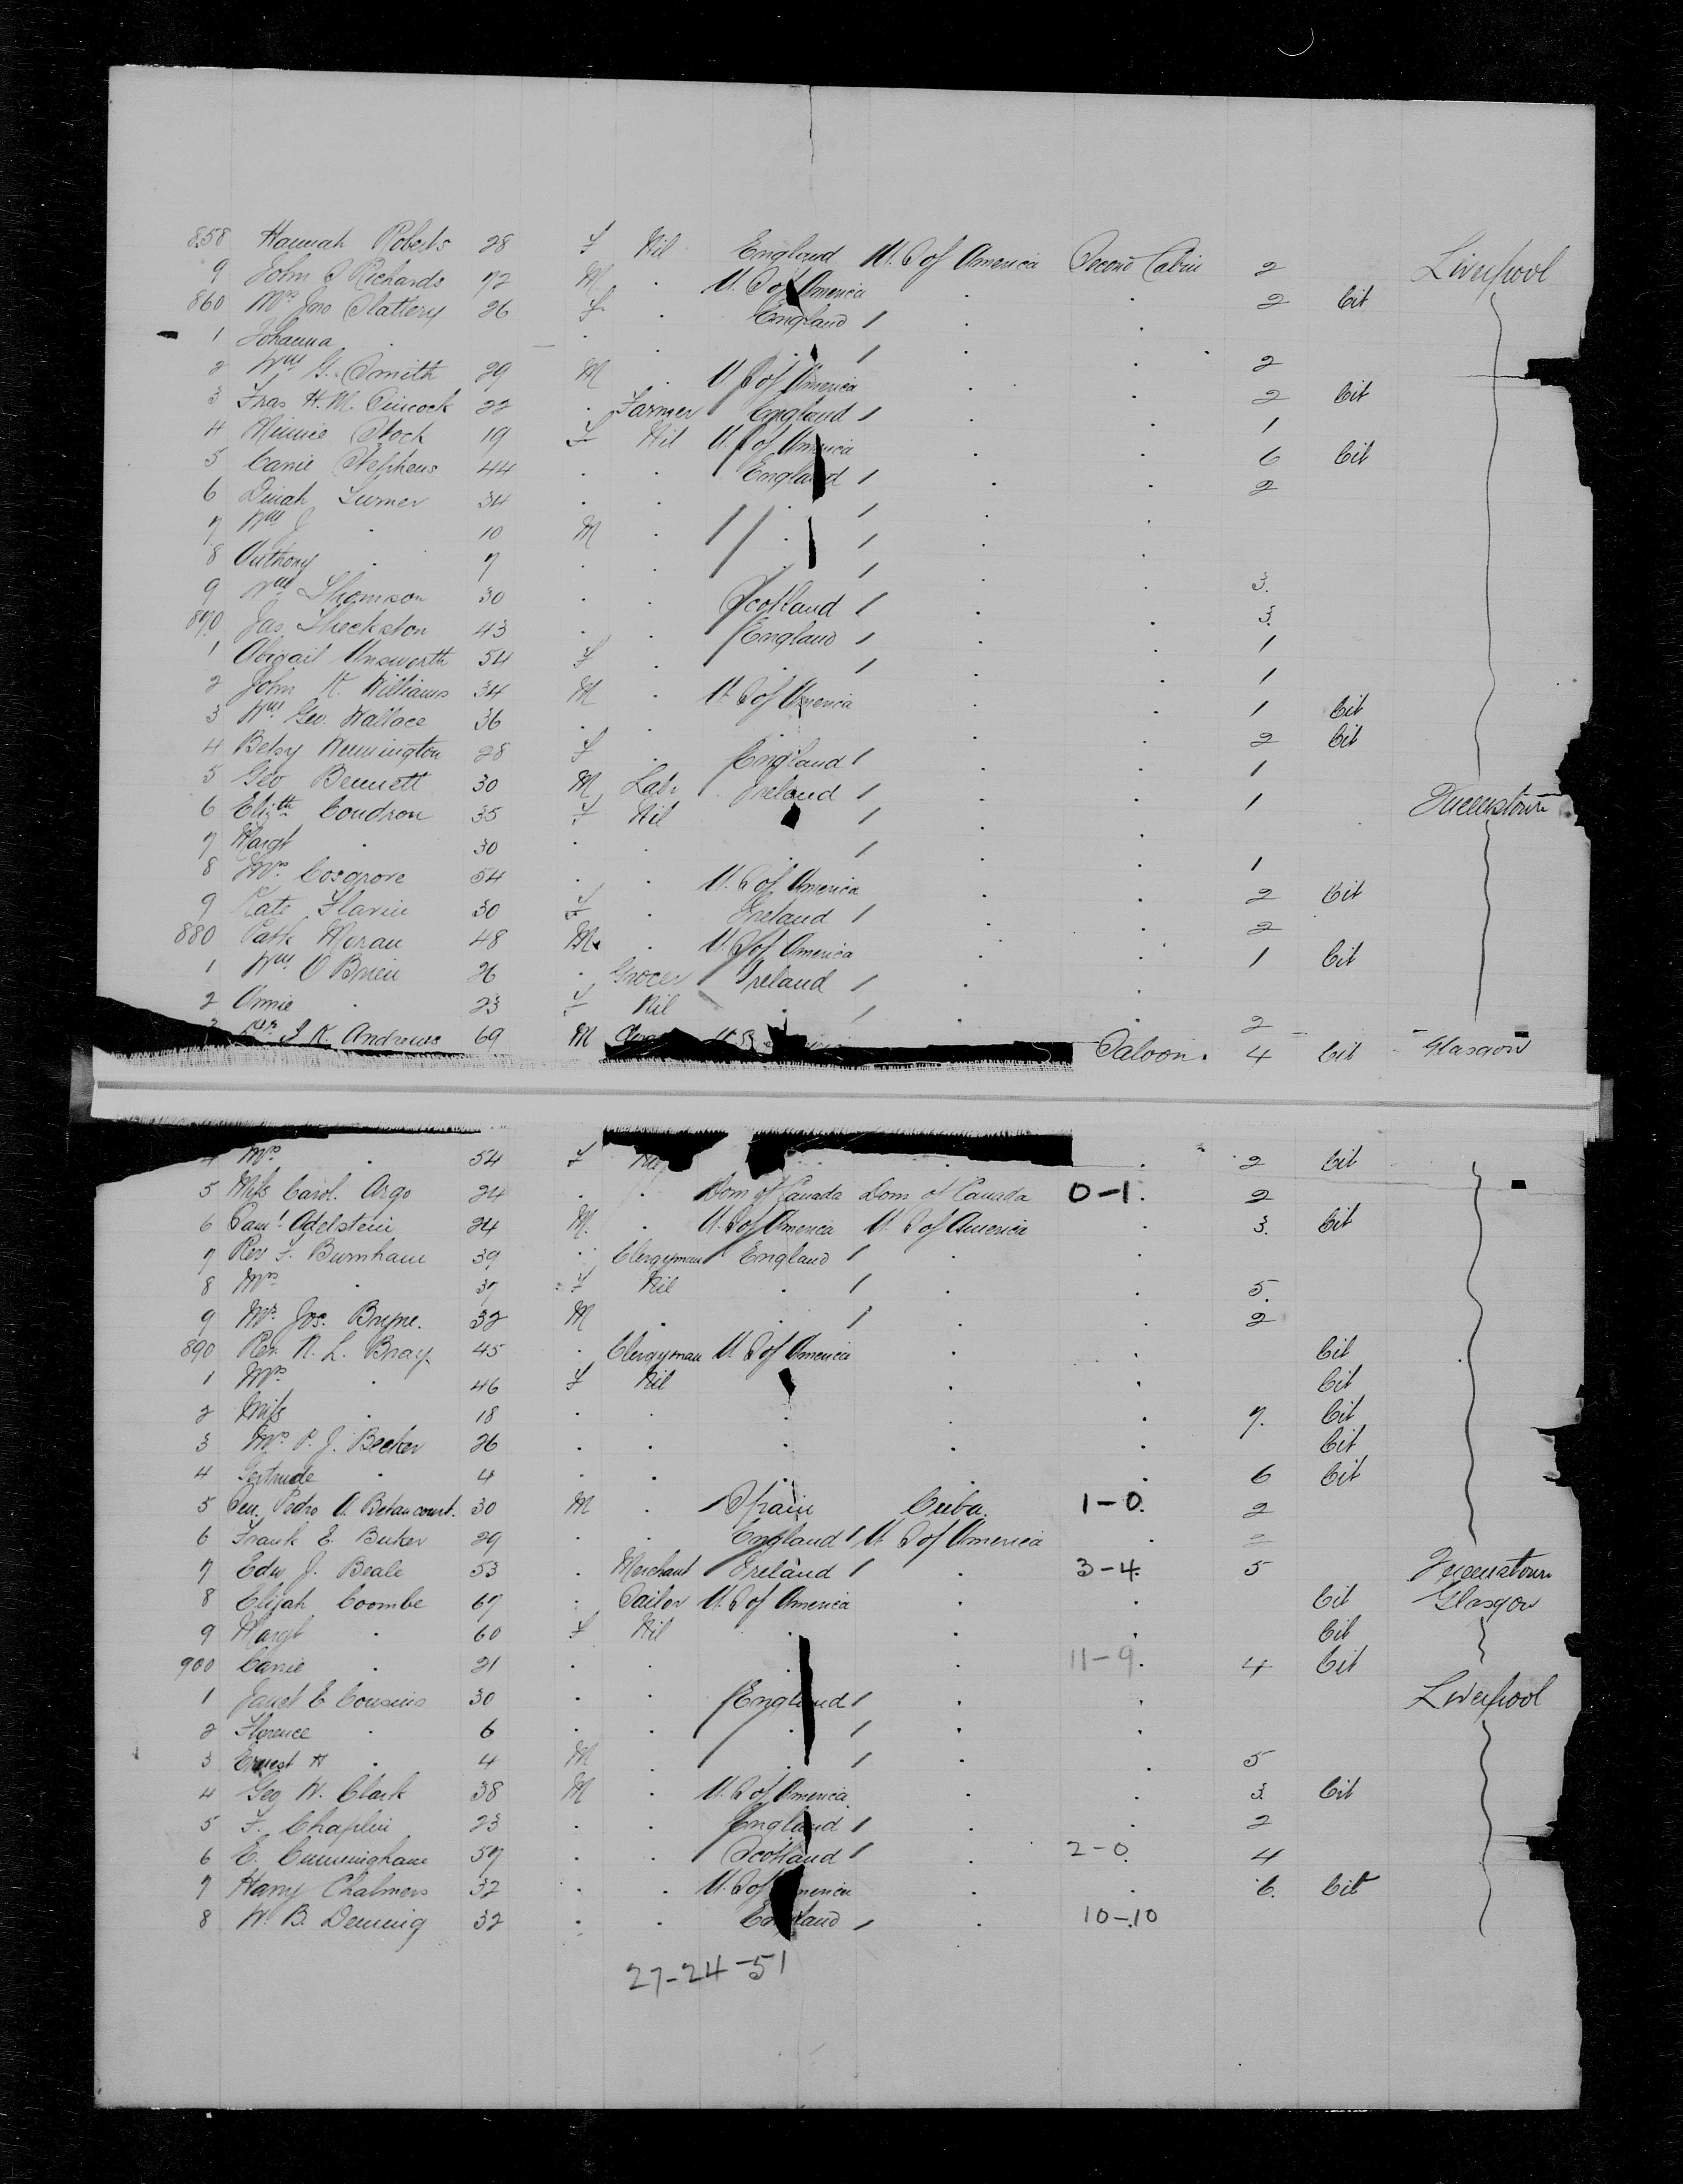 858 Hannah Roberts 28 f Nil England U. S of America Second Cabin 2 Liverpool
9 John S Richards 72 M . U. S of America . . 2 Cit
860 Mrs Jno Slattery 26 f . England / . .
1 Johanna . — . . . / . . 2
2 Wm G. Smith 29 M . U S of America . . 2 Cit
3 Fras H. M. 22 . Farmer England / . . 1
4 Minnie Stock 19 f Nil U. S of America . . 6 Cit
5 Carrie Stephens 44 . . England / . . 2
6 Dinah Turner 34 . . /
7 Wm J . 10 M . . / . .
8 Anthony . 7 . . . / . .
9 Wm Thomson 30 . . Scotland / . . 3.
870 Jas. Sheckston 43 . . England / . . 3.
1 Abigail Unsworth 54 f . . / . . 1
2 John K. Williams 34 M . U. S of America . . 1 Cit
3 Wm Geo. Wallace 36 . . . . . 2 Cit
4 Betsy Wennington 28 f . England / . . 1
5 Geo Bennett 30 M Labr Ireland / . . 1 Queenstown
6 Elizth Condron 35 f Nil / . .
7 Margt . 30 . . . / . . 1
8 Mrs. Cosgrove 54 . . U. S of America . . 2 Cit
9 Kate Flavin 30 f . Ireland / . . 2
880 Patk Moran 48 M . U. S of America . . 1 Cit
1 Wm O Brien 26 . Grocer Ireland / . .
2 Annie . 23 f Nil . / . . 2
Rev. J. K. Andrews 69 M Saloon . 4 Cit Glasgow
4 Mrs . 54 f . . . 2 Cit
5 Miss Carol. Argo 24 . . Dom of Canada Dom of Canada 0-1. 2
6 Saml Adelstein 24 M. . U. S of America U. S of America . 3. Cit
7 Rev F. Burnham 39 . Clergyman England / . .
8 Mrs . 37 f Nil . / . . 5.
9 Mr. Jos. Bryne. 32 M . . / . . 2
890 Rev. N. L. Bray 45 . Clergyman U. S of America . . Cit
1 Mrs . 46 f Nil . . Cit
2 Miss . 18 . . . . . 7. Cit
3 Mrs P. J. Becker 26 . . . . . Cit
4 Gertrude . 4 . . . . . 6 Cit
5 Gen. Pedro A. Betancourt. 30 M . Spain Cuba. 1-0. 2
6 Frank E. Buker 29 . . England / U. S of America . 2
7 Edw J. Beale 53 . Merchant Ireland / . 3-4. 5 Queenstown
8 Elijah Coombe 67 . Tailor U. S of America . . Cit Glasgow
9 Margt . 60 f Nil . . . Cit
900 Carrie . 21 . . . . 11-9. 4 Cit
1 Janet E Cousins 30 . . England / . . Liverpool
2 Florence . 6 . . . / . .
3 Ernest H . 4 M . . / . . 5
4 Geo W. Clark 38 M . U. S of America . . 3. Cit
5 F. Chaplin 23 . . England / . . 2
6 E. Cunningham 57 . . Scotland / . 2-0. 4
7 Harry Chalmers 32 . . U. S of America . . 6. Cit
8 W. B. Deming 32 . . England / . 10-10
27-24-51